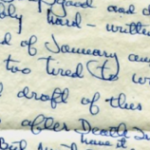 good and d
hard - written
d of January an
too tired (to w
draft of this
after Death
have it